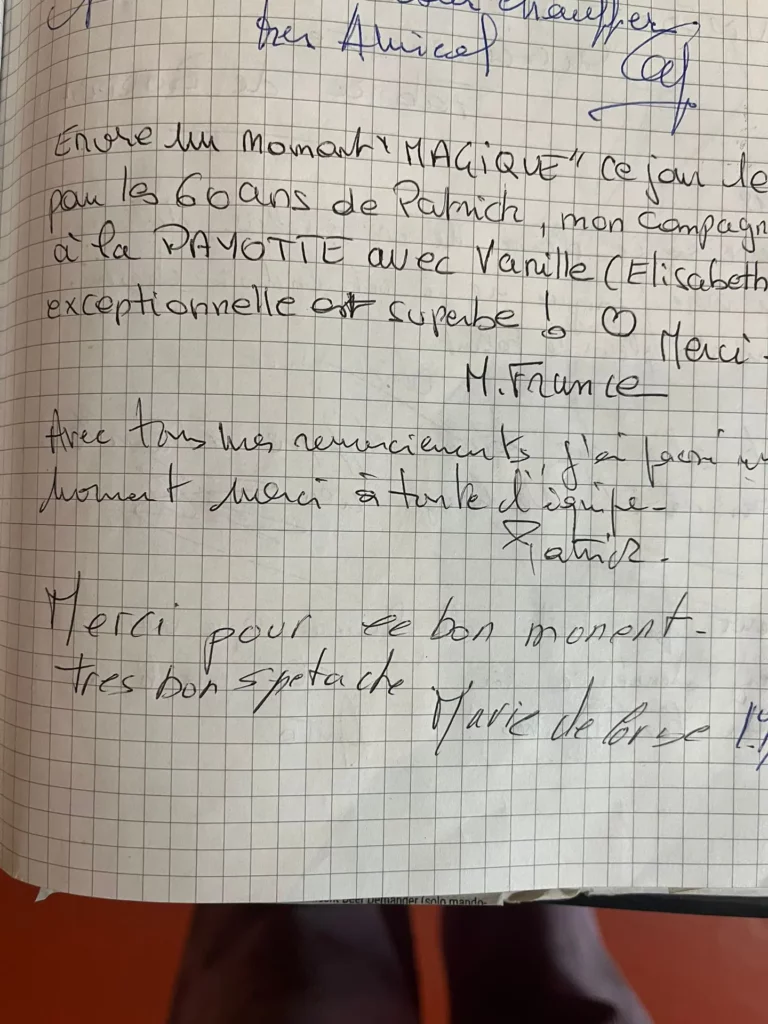 chauffer
très Amical
Encore un moment "MAGiQUE" ce jour de
pour les 60 ans de Patrick, mon compagn
à la PAYOTTE avec Vanille (Elisabeth
exceptionnelle est superbe ! Merci.
M. France
Avec tous mes remerciements, j'ai passé un
moment merci à toute l'équipe-
Patrick.
Merci pour ce bon monent-
tres bon spetache
Marie de Corse !!
demander (solo mando-